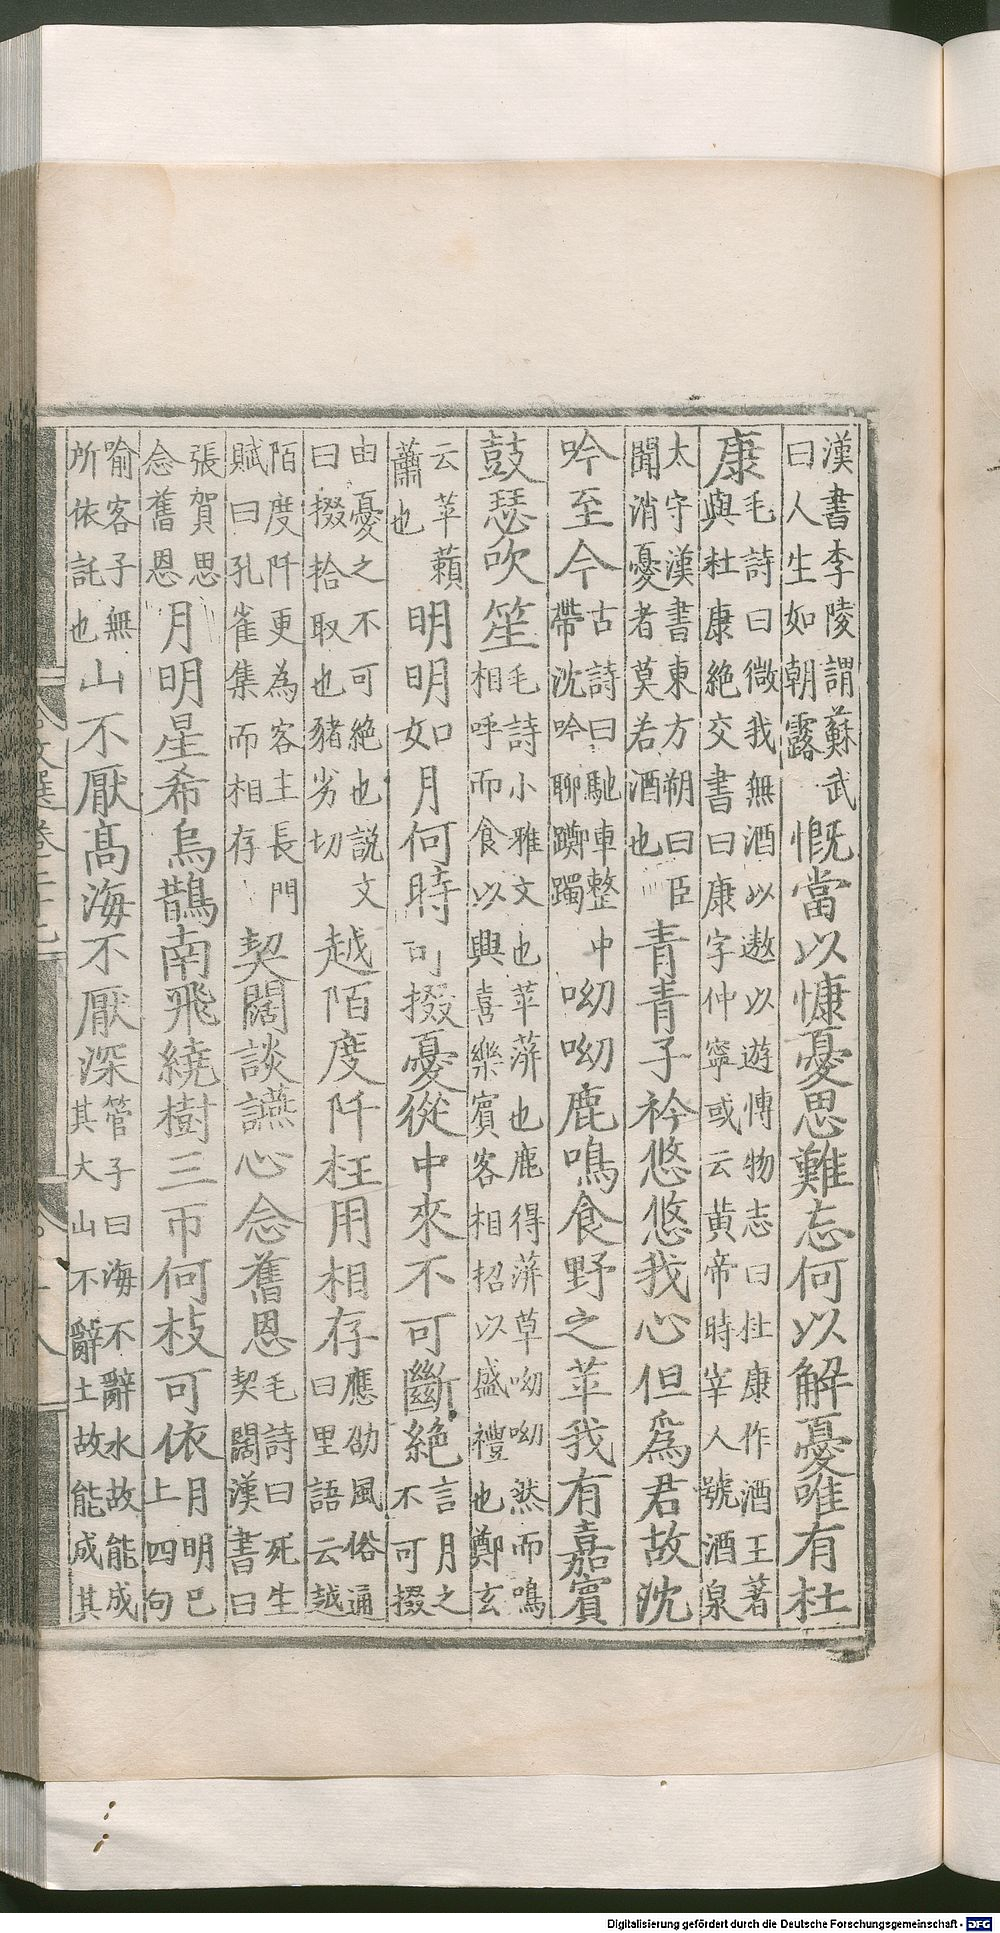 漢書李陵謂蘇武曰人生如朝露慨當以慷憂思難忘何以解憂唯有杜
康毛詩曰微我無酒以遨以遊博物志曰杜康作酒王著與杜康絶交書曰康字仲寧或云黄帝時宰人號酒泉
太守漢書東方朔曰臣聞消憂者莫若酒也青青子衿悠悠我心但爲君故沈
吟至今古詩曰馳車整中帶沈吟聊躑躅呦呦鹿鳴食野之苹我有嘉賓
鼓瑟吹笙毛詩小雅文也苹蓱也鹿得蓱草呦呦然而鳴相呼而食以興喜樂賓客相招以盛禮也鄭玄
云苹藾蕭也明明如月何時可掇憂從中來不可斷絶言月之不可掇
由憂之不可絶也説文曰掇拾取也豬劣切越陌度阡枉用相存應劭風俗通曰里語云越
陌度阡更為客主長門賦曰孔雀集而相存契闊談讌心念舊恩毛詩曰死生契闊漢書曰
張賀思念舊恩月明星希烏鵲南飛繞樹三帀何枝可依月明已上四句
喻客子無所依託也山不厭高海不厭深管子曰海不辭水故能成其大山不辭土故能成其
Digitalisierung gefördert durch die Deutsche Forschungsgemeinschaft - DFG